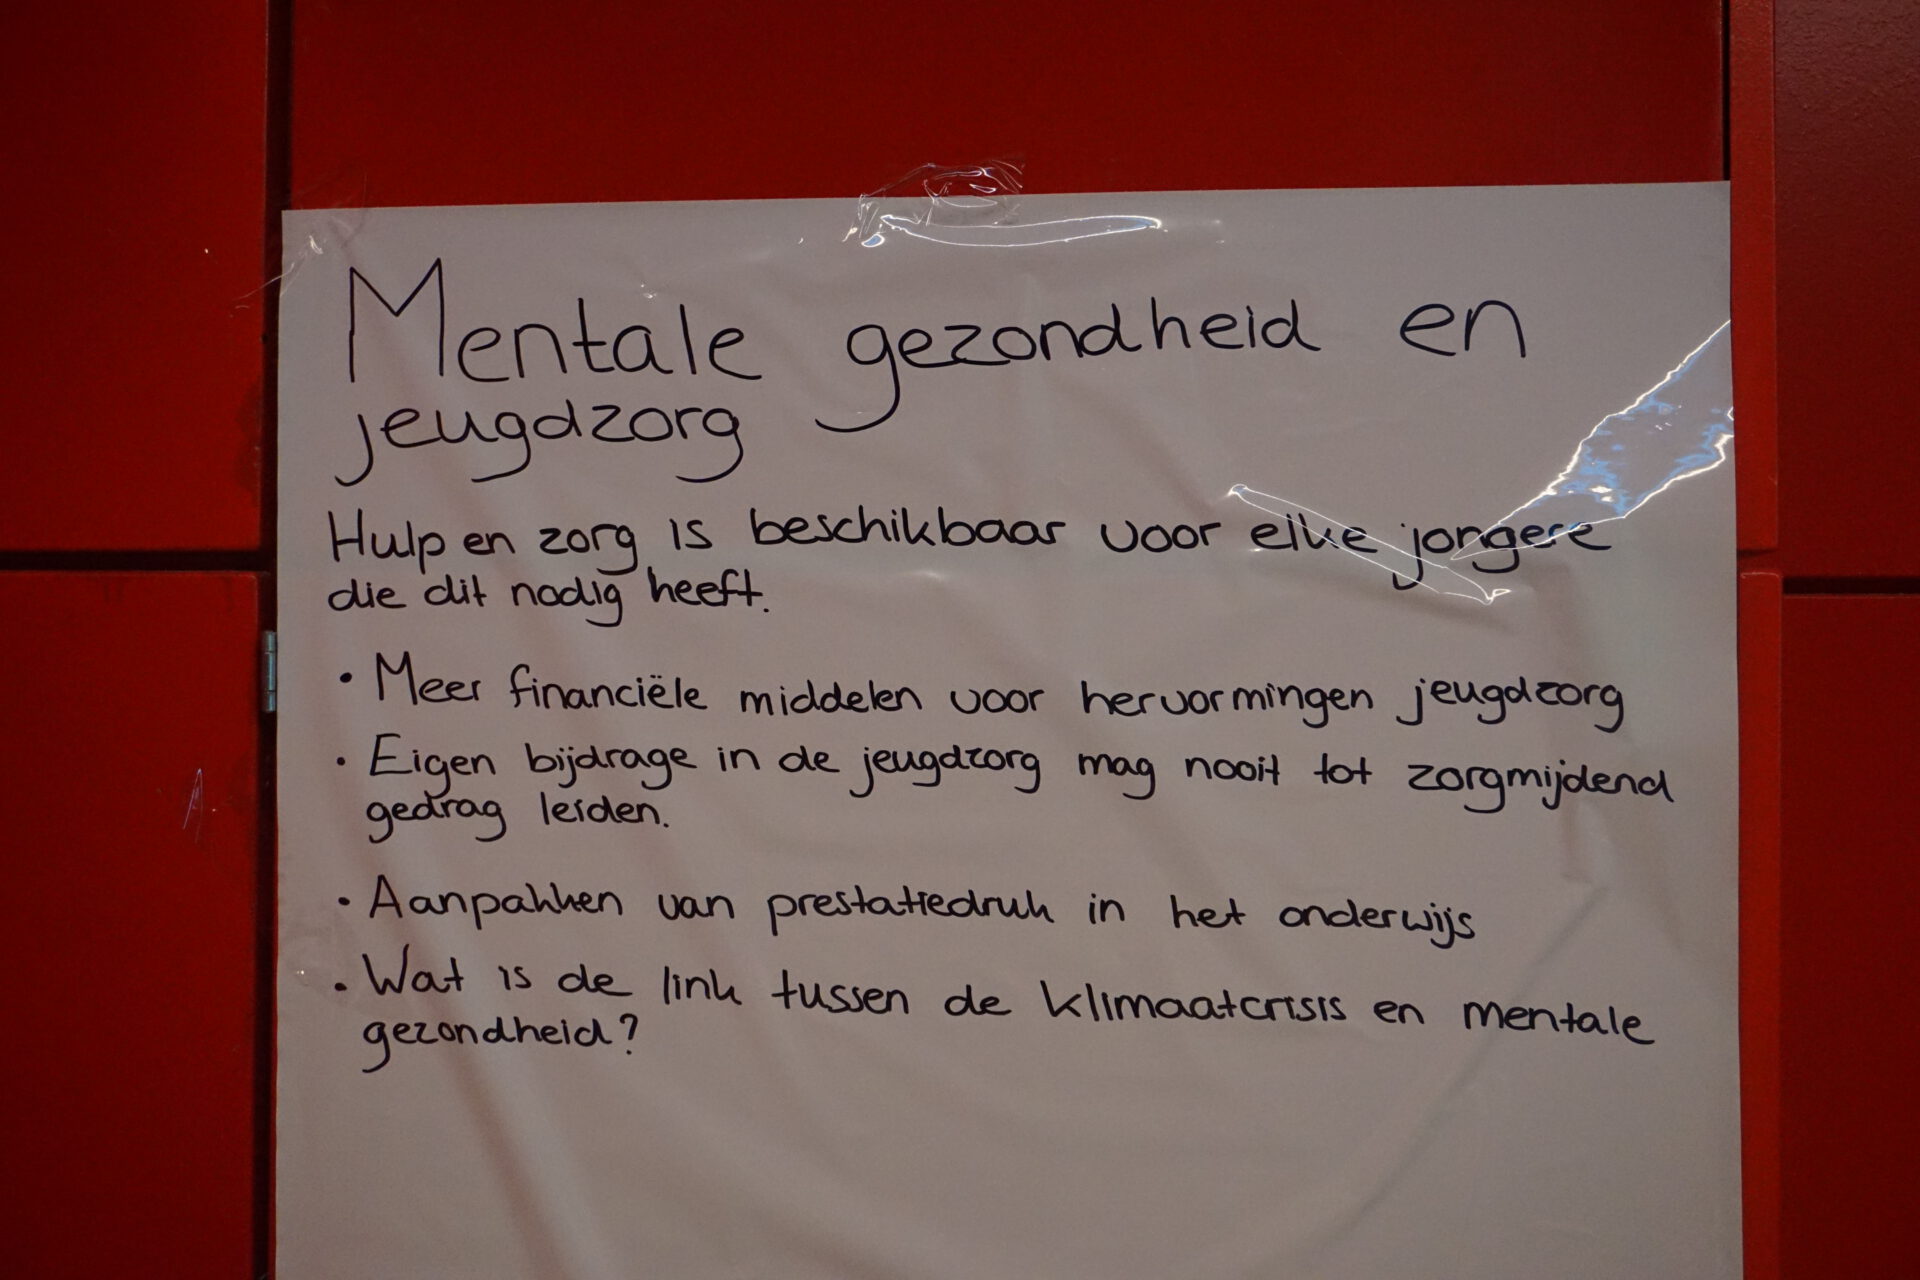 Mentale gezondheid en
jeugdzorg
Hulp en zorg is beschikbaar voor elke jongere
die dit nodig heeft.
• Meer financiële middelen voor hervormingen jeugdzorg
• Eigen bijdrage in de jeugdzorg mag nooit tot zorgmijdend
gedrag leiden.
• Aanpakken van prestatiedruk in het onderwijs
• Wat is de link tussen de klimaatcrisis en mentale
gezondheid?